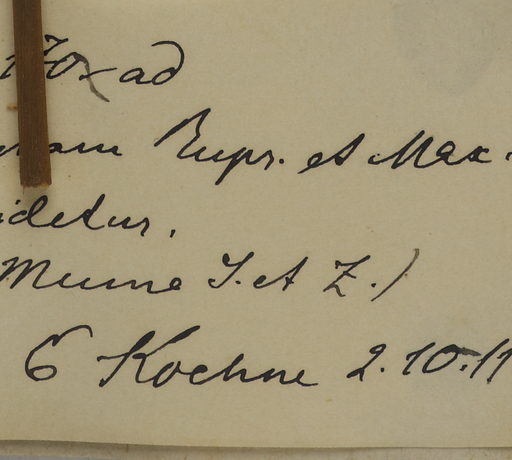 ad
Rupr. et Max.
idetur.
Mume S. et Z.)
E Koehne 2.10.11